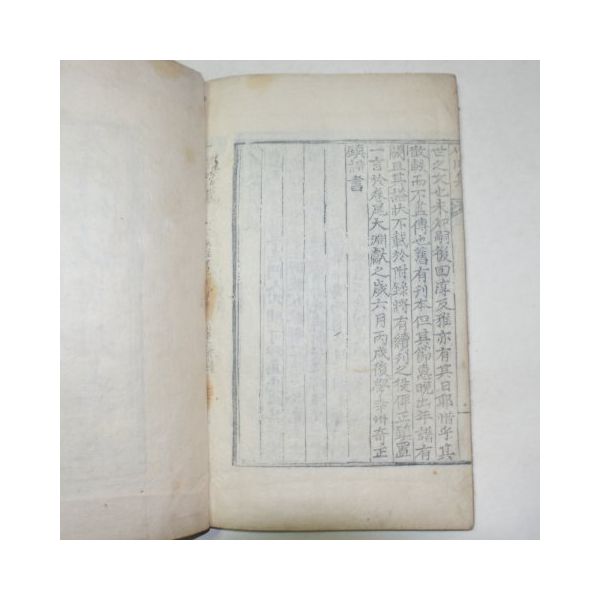 世之文也未知嗣後回淳反雅亦有其日耶惜乎其
散軼而不盡傳也舊有刊本但其節惠晚出年譜有
闕且其諡狀不載於附錄將有續刊之役俾正鎭置
一言於卷尾大淵獻之歲六月丙戌後學奇正
鎭謹書